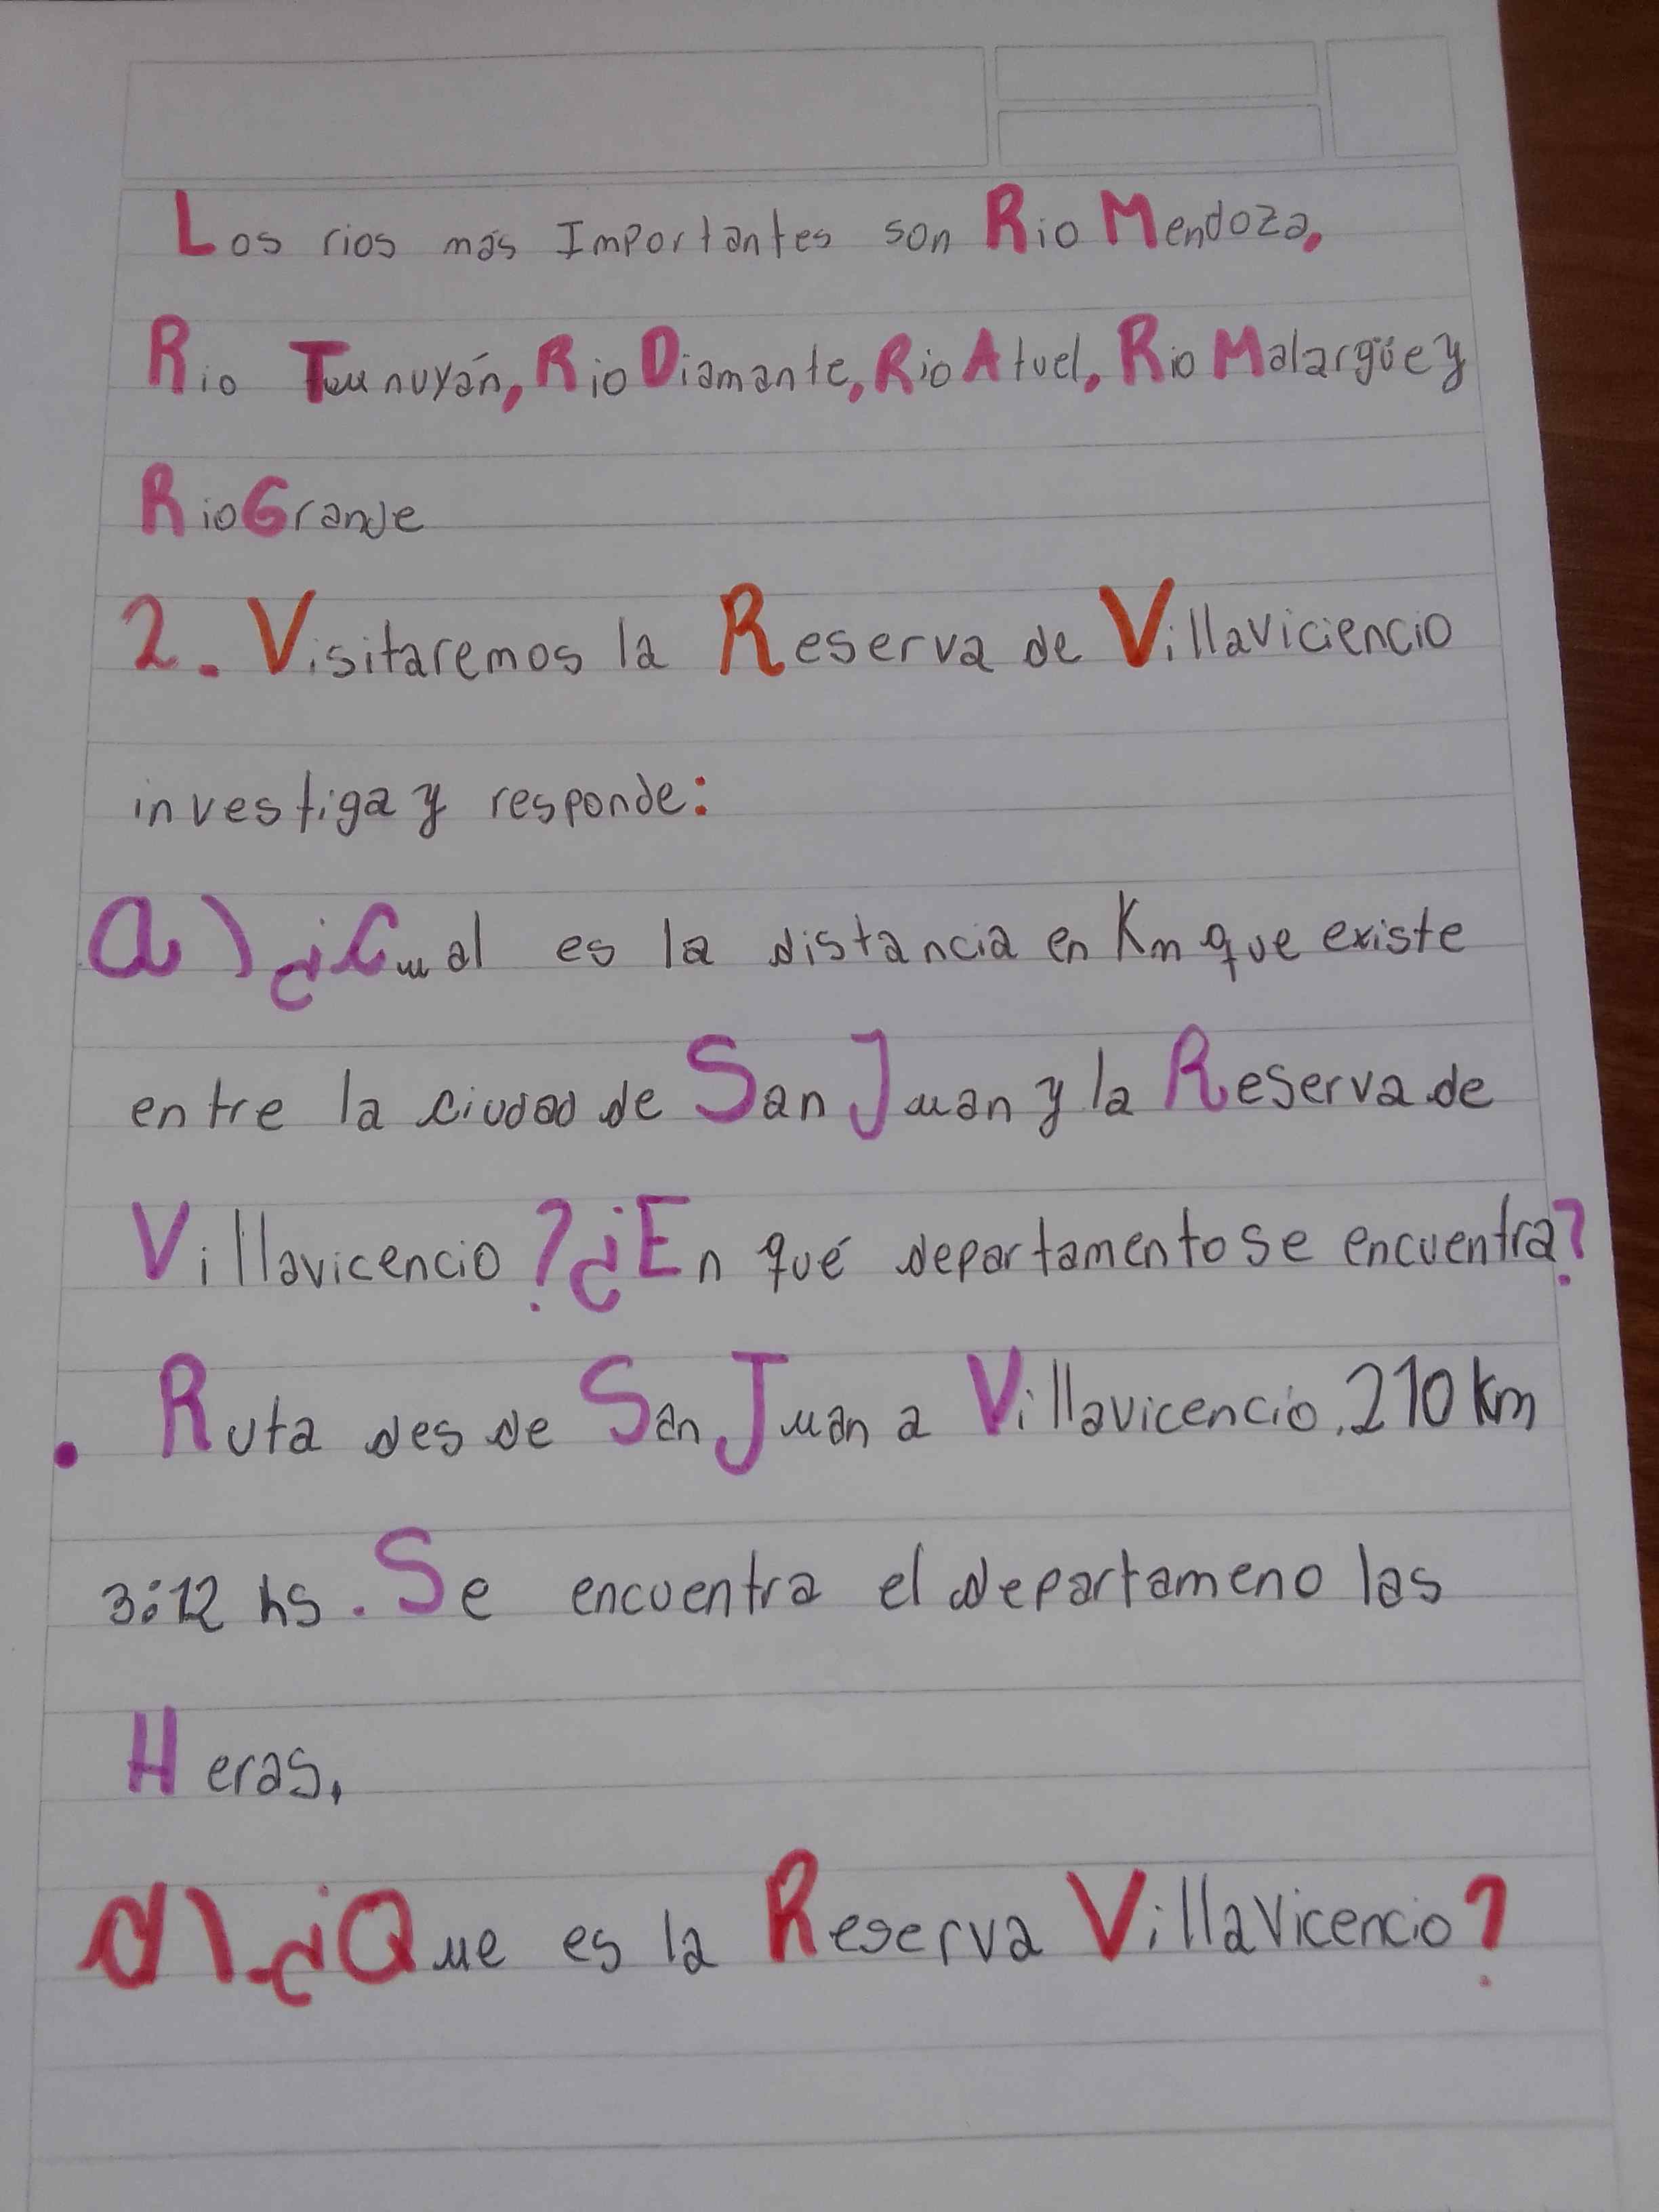 Los rios más Importantes son Rio Mendoza,
Rio Tunuyán, Rio Diamante, Rio Atuel, Rio Malargüe y
Rio Grande
2. Visitaremos la Reserva de Villaviciencio
investiga y responde:
a) ¿Cual es la distancia en Km que existe
entre la ciudad de San Juan y la Reserva de
Villavicencio? ¿En qué departamento se encuentra?
. Ruta desde San Juan a Villavicencio. 210 km
3:12 hs. Se encuentra el departameno las
Heras.
d) ¿Que es la Reserva Villavicencio?